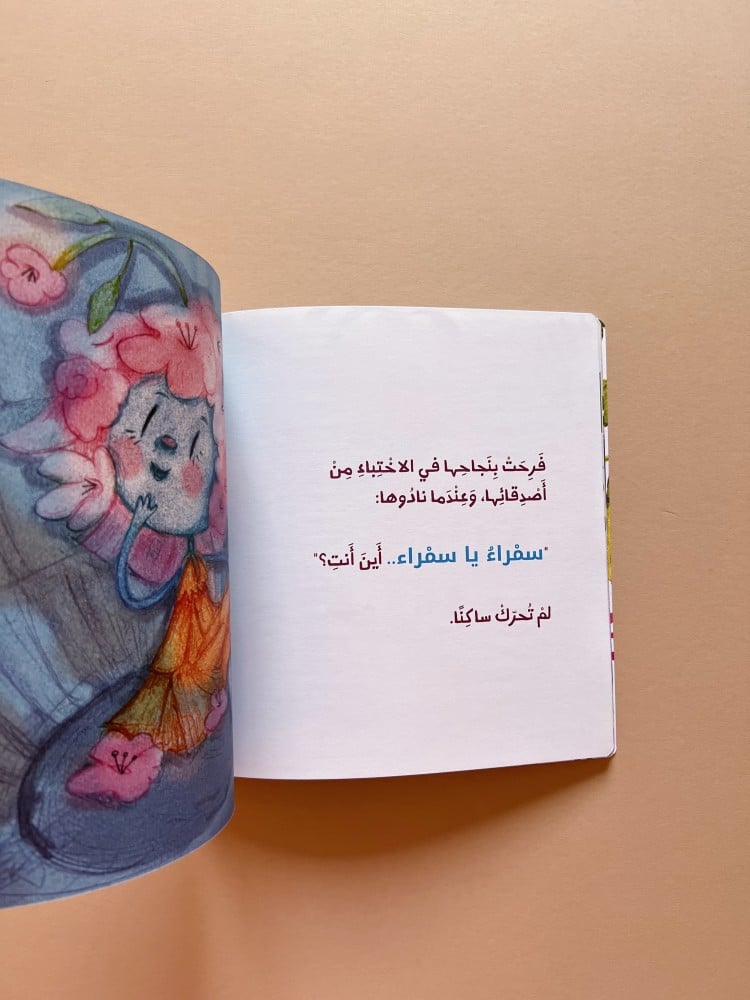 فَرِحَتْ بِنَجاحِها في الاخْتِباءِ مِنْ
أَصْدِقائِها، وَعِنْدَما نادُوها:
"سمْراءُ يا سمْراء.. أَينَ أَنتِ؟"
لمْ تُحرّكْ ساكِنًا.